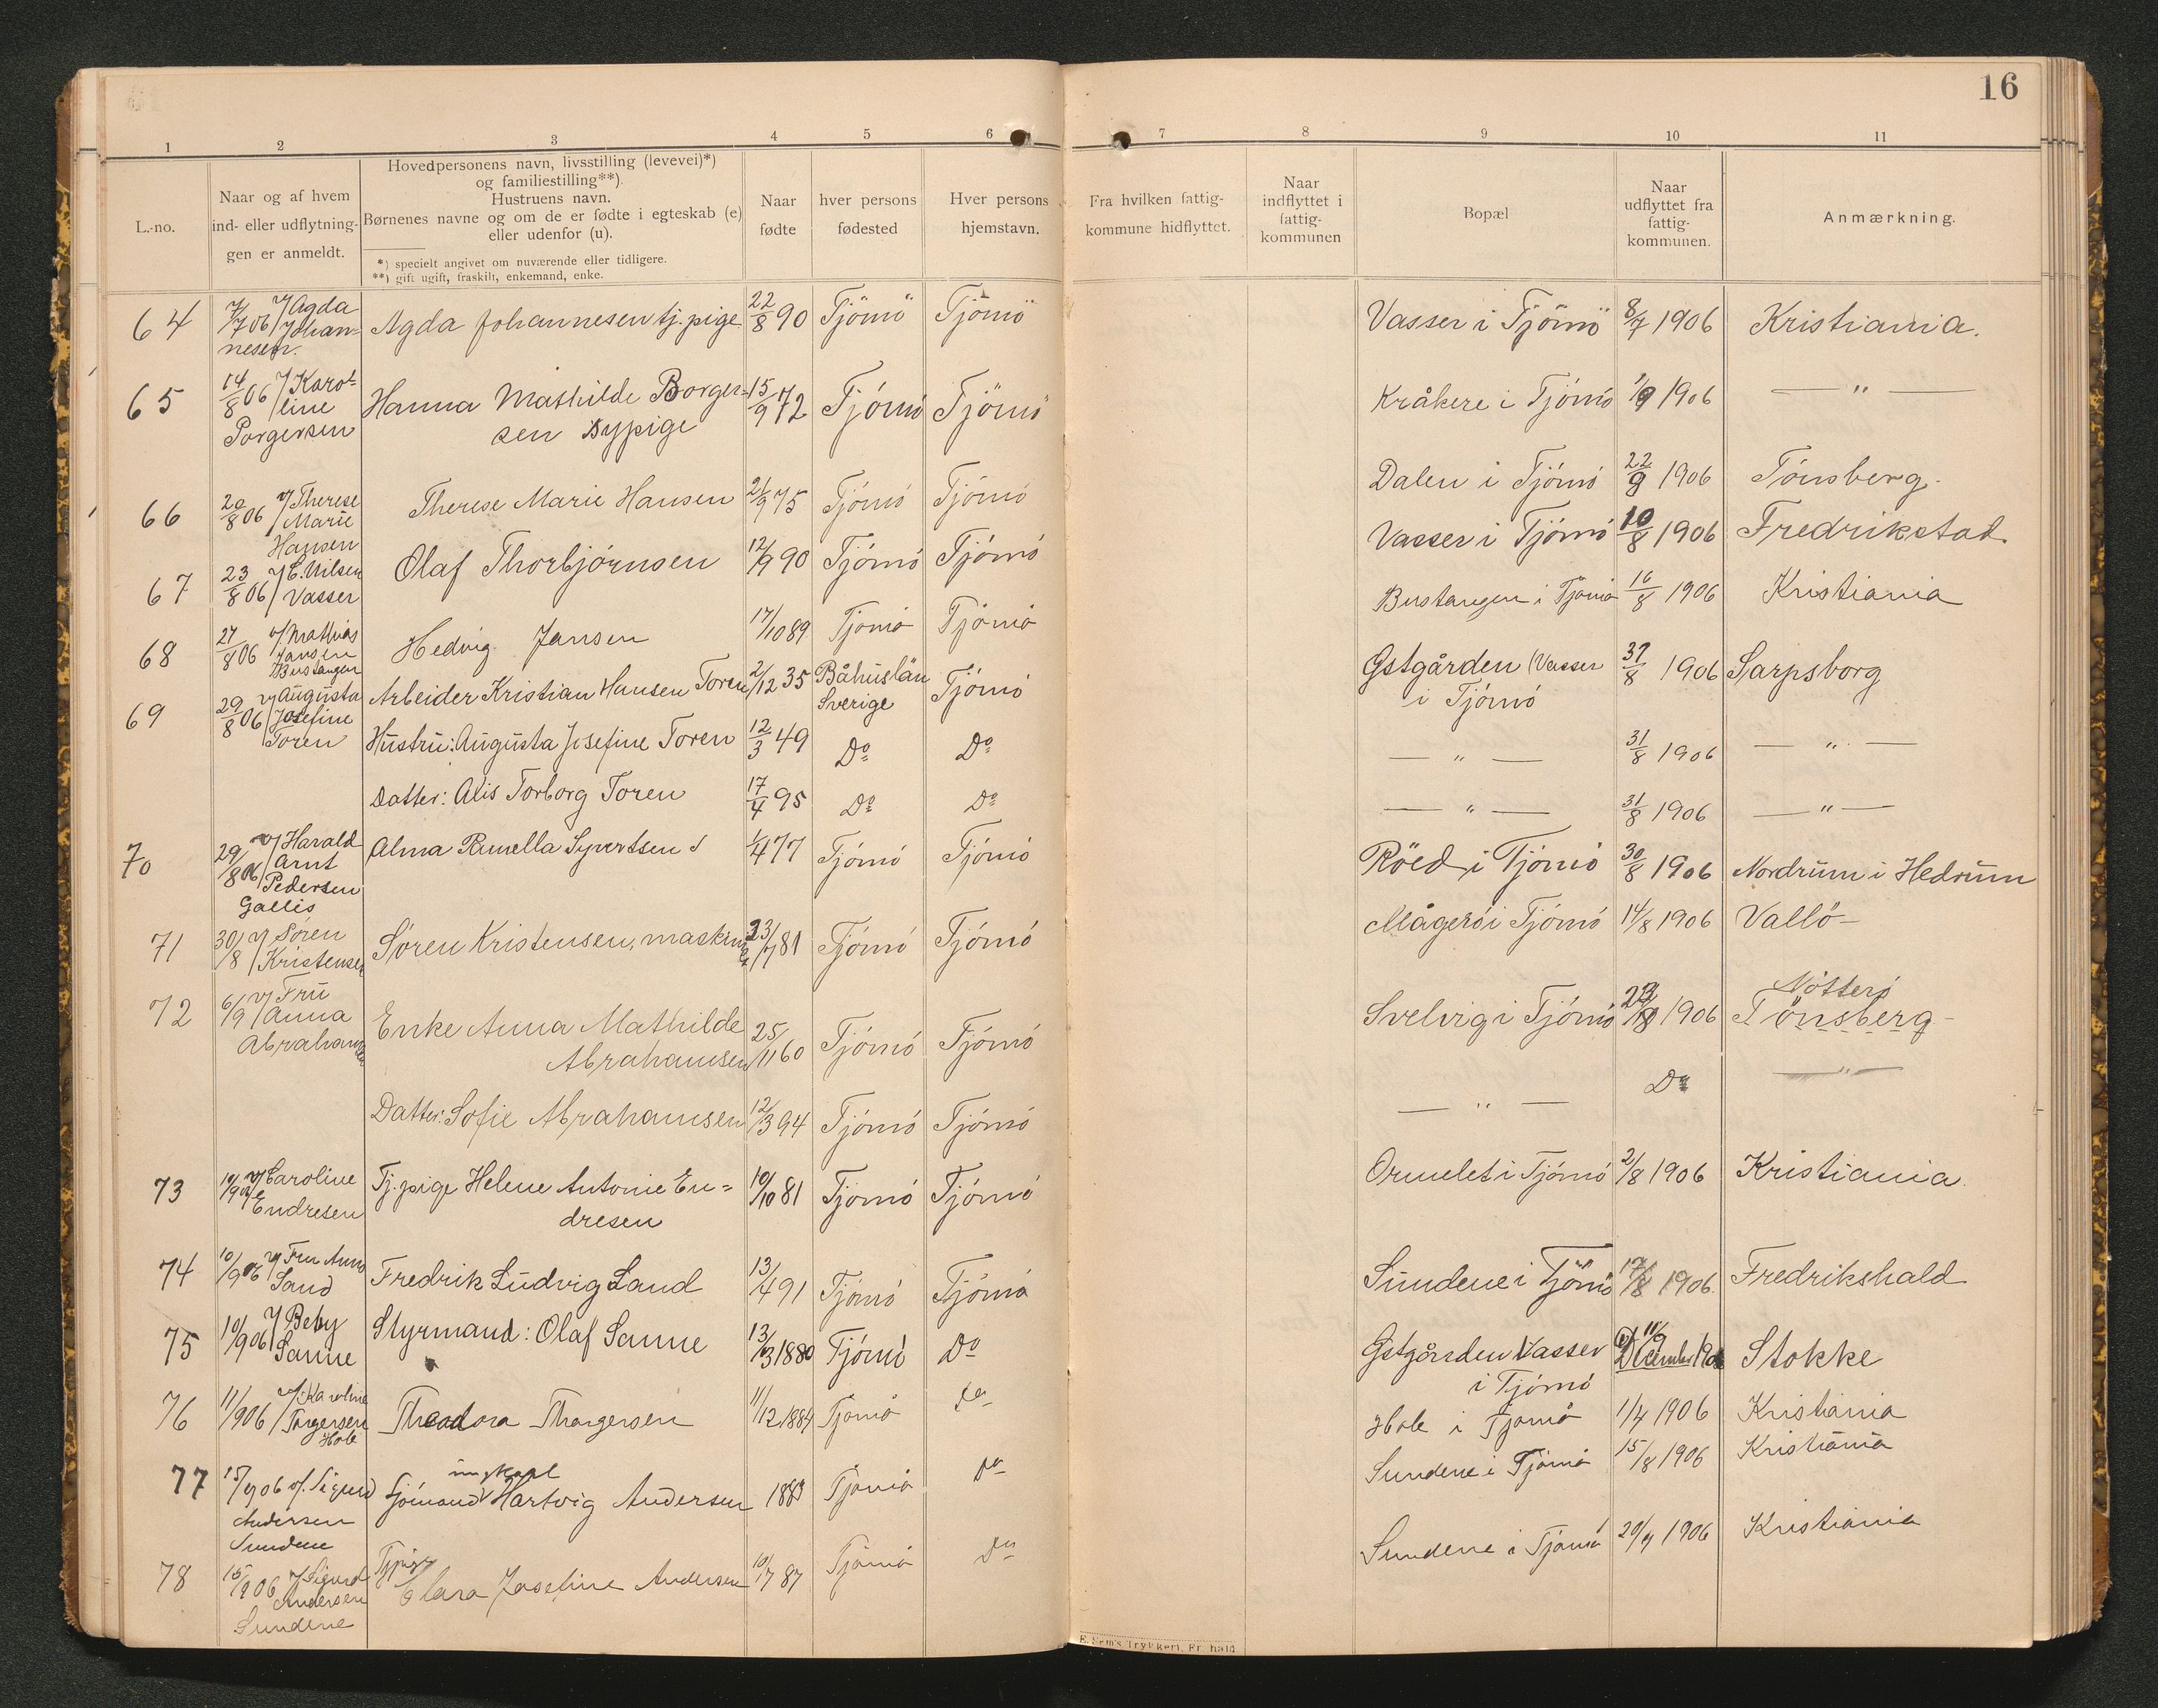 16
1 2 3 4 5 6 7 8 9 10 11
L.-no.
Naar og af hvem
ind- eller udflytnin-
gen er anmeldt.
Hovedpersonens navn, livsstilling (levevei)*)
og familiestilling**).
Hustruens navn.
Børnenes navne og om de er fødte i egteskab (e)
eller udenfor (u).
*) specielt angivet om nuværende eller tidligere.
**) gift ugift, fraskilt, enkemand, enke.
Naar
fødte
hver persons
fødested
Hver persons
hjemstavn.
Fra hvilken fattig-
kommune hidflyttet.
Naar
indflyttet i
fattig-
kommunen
Bopæl
Naar
udflyttet fra
fattig-
kommunen.
Anmærkning.
64 7/7 06 v/ Agda Agda Johannesen tj. pige 22/8 90 Tjömö Tjömö Vasser i Tjömö 8/7 1906 Kristiania.
Johan-
nesen.
65 14/8 06 v/ Karo- Hanna Mathilde Borger- 15/9 72 Tjömö Tjömö Kråkere i Tjömö 1/9 1906 — " —
line sen Sypige
Borgersen
66 20/8 06 v/ Therese Therese Marie Hansen 21/9 75 Tjömö Tjömö Dalen i Tjömö 22/9 1906 Tönsberg.
Marie
Hansen
67 23/8 06 v/ E. Nilsen Olaf Thorbjörnsen 12/9 90 Tjömö Tjömö Vasser i Tjömö 10/8 1906 Fredrikstad
Vasser
68 27/8 06 v/ Mathias Hedvig Jansen 17/10 89 Tjömö Tjömö Bustangen i Tjömö 16/8 1906 Kristiania
Jansen
Bustangen
69 29/8 06 v/ Augusta Arbeider Kristian Hansen Toren 2/12 35 Båhuslän Tjömö Gstgården (Vasser 31/8 1906 Sarpsborg
Josefine Sverige i Tjömö
Toren Hustru: Augusta Josefine Toren 12/3 49 Do Do — " — 31/8 1906 — " —
Datter: Alis Torborg Toren 17/4 95 Do Do — " — 31/8 1906 — " —
70 29/8 06 v/ Harald Alma Syvertsen 1/4 77 Tjömö Tjömö Röed i Tjömö 30/8 1906 Nordrum i Hedrum
Arnt
Pedersen
Gallis
71 30/8 v/ Sören Sören Kristensen, maskinist 23/7 81 Tjömö Tjömö Mågerö i Tjömö 14/8 1906 Vallö
Kristensen
72 6/9 v/ Fru Enke Anna Mathilde 25/11 60 Tjömö Tjömö Svelvig i Tjömö 1906 Nötterö
Anna Abrahamsen Tönsberg
Abrahamsen
Datter: Sofie Abrahamsen 12/3 94 Tjömö Tjömö — " — Do — " —
73 10/9 06 v/ Caroline Tj. pige Helene Antonie En- 10/10 81 Tjömö Tjömö Ormelet i Tjömö 2/8 1906 Kristiania.
Endresen dresen
74 10/9 06 v/ Fru Anna Fredrik Ludvig Sand 13/4 91 Tjömö Tjömö Sundene i Tjömö 17/8 1906. Fredrikshald
Sand
75 10/9 06 v/ Beby Styrmand: Olaf Sanne 13/3 1880 Tjömö Do Gstgården Vasser December 190 Stokke
Sanne i Tjömö
76 11/9 06 v/ Karoline Theodora Thorgersen 11/12 1884 Tjömö Do Hole i Tjömö 1/4 1906 Kristiania
Torgersen
Hole
77 15/9 06 v/ Sigurd Sjömand ungkarl Hartvig Andersen 1883 Tjömö Do Sundene i Tjömö 15/8 1906 Kristiania
Andersen
Sundene
78 15/9 06 v/ Sigurd Tjpige Clara Josefine Andersen 10/7 87 Tjömö Do Sundene i Tjömö 20/9 1906 Kristiania
Andersen
Sundene
E. Sem's Trykkeri, Fr.hald